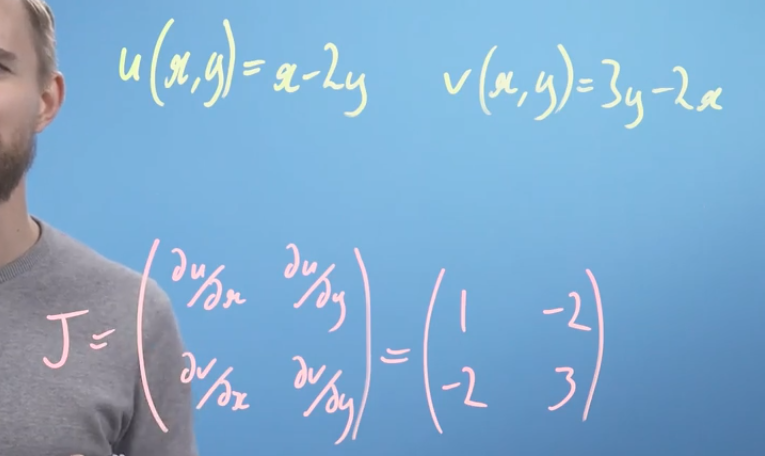 u(x,y)=x-2y v(x,y)=3y-2x
J= (∂u/∂x ∂u/∂y) = (1 -2)
(∂v/∂x ∂v/∂y) (-2 3)